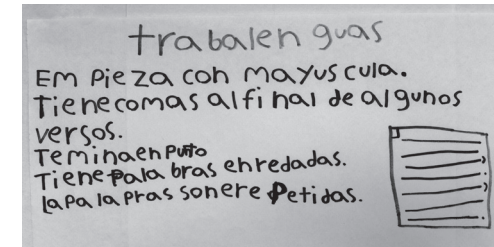 trabalen guas
Em pieza con mayus cula.
Tienecomas alfinal de algunos
versos.
Teminaen puto
Tiene pala bras enredadas.
lapala pras sonere petidas.